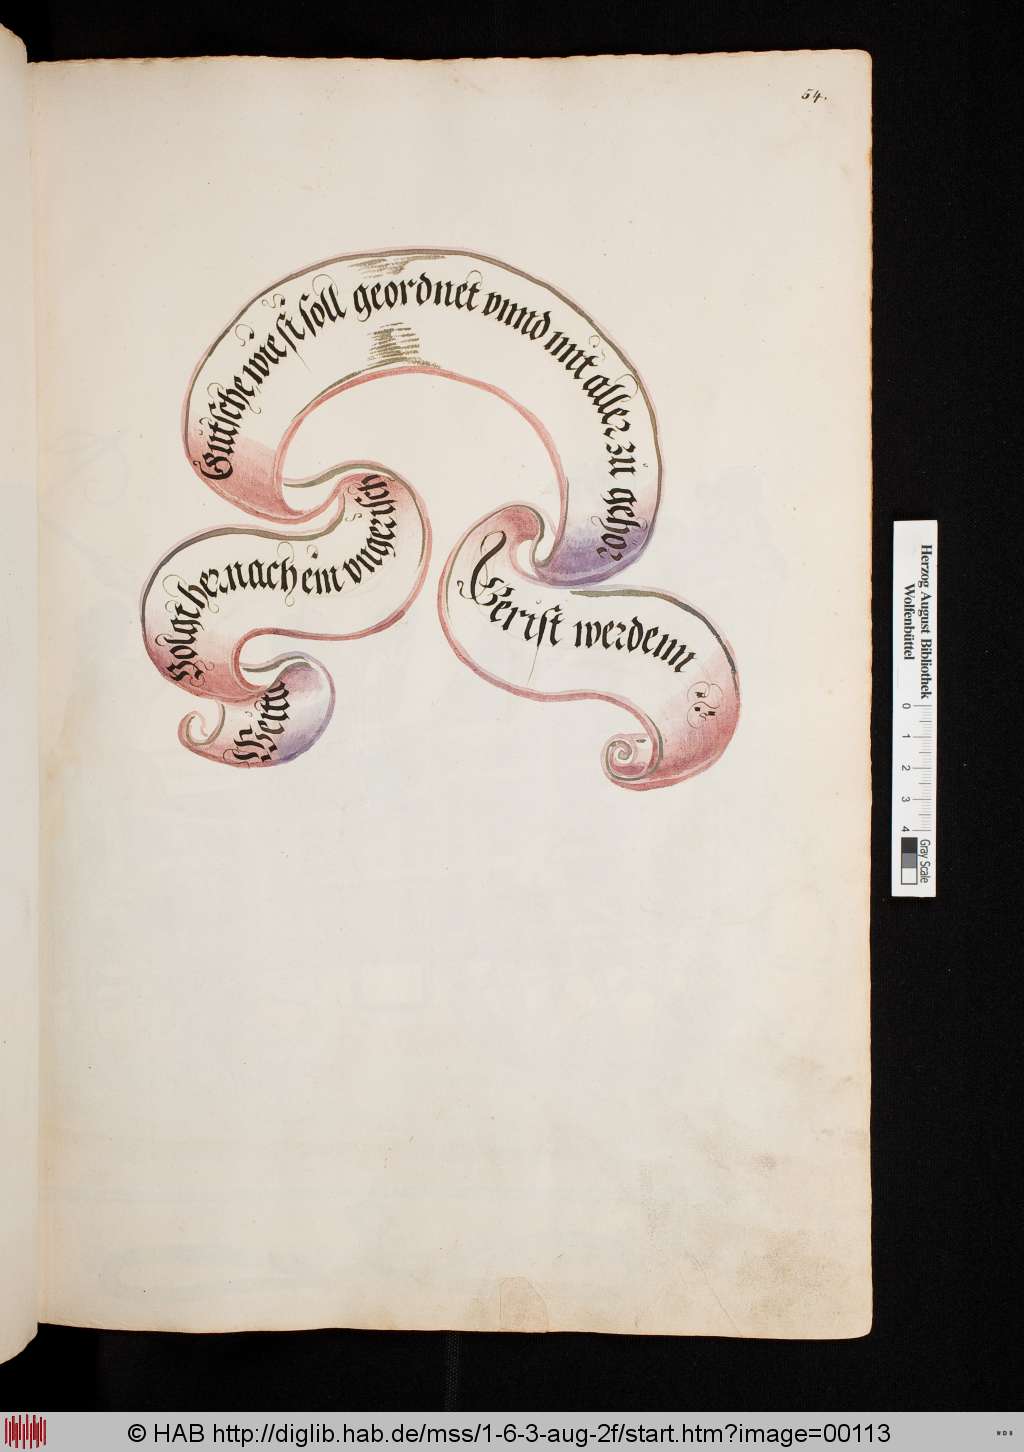 54.
Weitto
Volgt her nach ein vngerisch
Gutsche wie si soll geordnet vnnd mit aller zu gehor
Gerist werdenn
Herzog August Bibliothek
Wolfenbüttel
0 1 2 3 4
Gray Scale
© HAB http://diglib.hab.de/mss/1-6-3-aug-2f/start.htm?image=00113